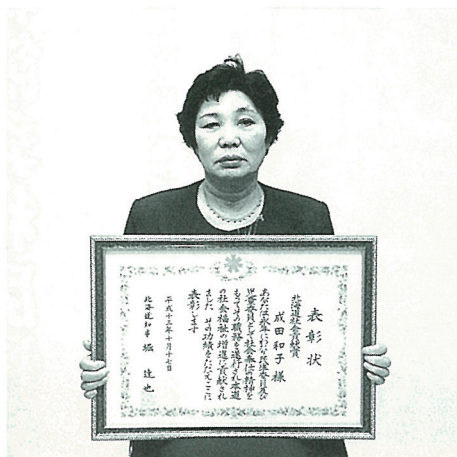 表彰状
北海道社会貢献賞
成田和子様
あなたは永年にわたり民生委員及び
児童委員として社会奉仕の精神を
もってその職務を遂行され本道
の社会福祉の増進に貢献され
ました その功績をたたえここに
表彰します
平成十三年十月十七日
北海道知事 堀達也